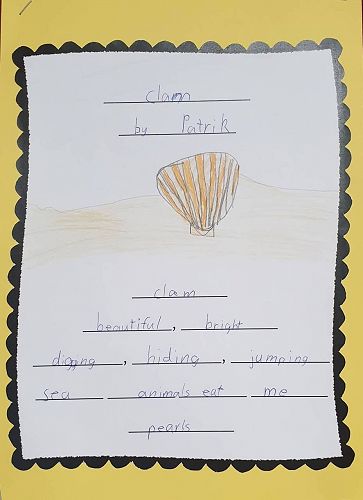 clam
by Patrik
clam
beautiful, bright
digging, hiding, jumping
sea animals eat me
pearls